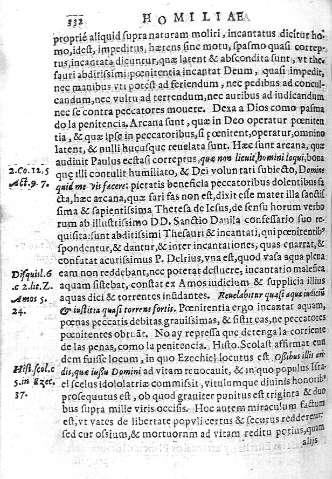 832 HOMILIAE
propriè aliquid supra naturam moliri, incantatus dicitur ho-
mo, idest, impeditus, hærens sine motu, spasmo quasi correp-
tus, incantata dicuntur, quæ latent & abscondita sunt, vt the-
sauri abditissimi pœnitentia incantat Deum, quasi impedit,
nec manibus vti potest ad feriendum, nec pedibus ad concul-
candum, nec vultu ad terrendum, nec auribus ad indicandum
nec se contra peccatores mouere. Dexa a Dios como pasma
do la penitencia. Arcana sunt, quæ in Deo operatur pœniten
tia, & quæ ipse in peccatoribus, si pœnitent, operatur, omnino
latent, & nulli hucusque reuelata sunt. Hæc sunt arcana, quæ
2.Co. 12.5 audiuit Paulus ectasi correptus quæ non licuit, homini loqui, bona
Act. 9. 7. que illi contulit humiliato, & Dei voluntati subiecto, Domine
quid me vis facere: pietatis beneficia peccatoribus dolentibus fa
cta, hæc arcana, quæ fari fas non est, dixit esse mater illa sanctis
sima & sapientissima Theresa de Iesus, de sensu horum verbo
rum ab illustrissimo DD. Sanctio Dauila confessario suo re-
quisita: sunt abditissimi Thesauri & incantati, qui pœnitentib9
spondentur, & dantur, & inter incantationes, quas enarrat, &
confutat acurissimus P. Delrius, vna est, quod vasa aqua plena
Disquisil. 6 eam non reddebant, nec poterat defluere, incantatio malefica
c 2. lit. Z. aquam sistebat, constat ex Amos iudicium & supplicia illius
Amos 5. aquas dici & torrentes inundantes. Reuelabitur quasi aqua iudiciũ
24. & iustitia quasi torrens fortis. Pœnitentia ergo incantat aquam,
pœnas peccatis debitas grauissimas, & sistit eas, ne peccatores
pœnitentes obruãt. No ay represa que detenga la corriente
de las penas, como la penitencia. Histo. Scolast affirmat eun
dem fuisse locum, in quo Ezechiel locutus est. Ossibus illi ari-
Hist. scol. c dis, quæ iussu Domini ad vitam reuocauit, & in quo populus Isra-
5. in Ezec. el scelus idololatriæ commisit, vitulumque diuinis honoribus
37. prosequutus est, ob quod grauiter punitus est triginta & duo
bus supra mille viris occisis. Hoc autem miraculum factum
est, vt vates de libertate populi certus & securus redderetur,
sed cur ossium, & mortuorum ad vitam reditu potius, quam
alijs